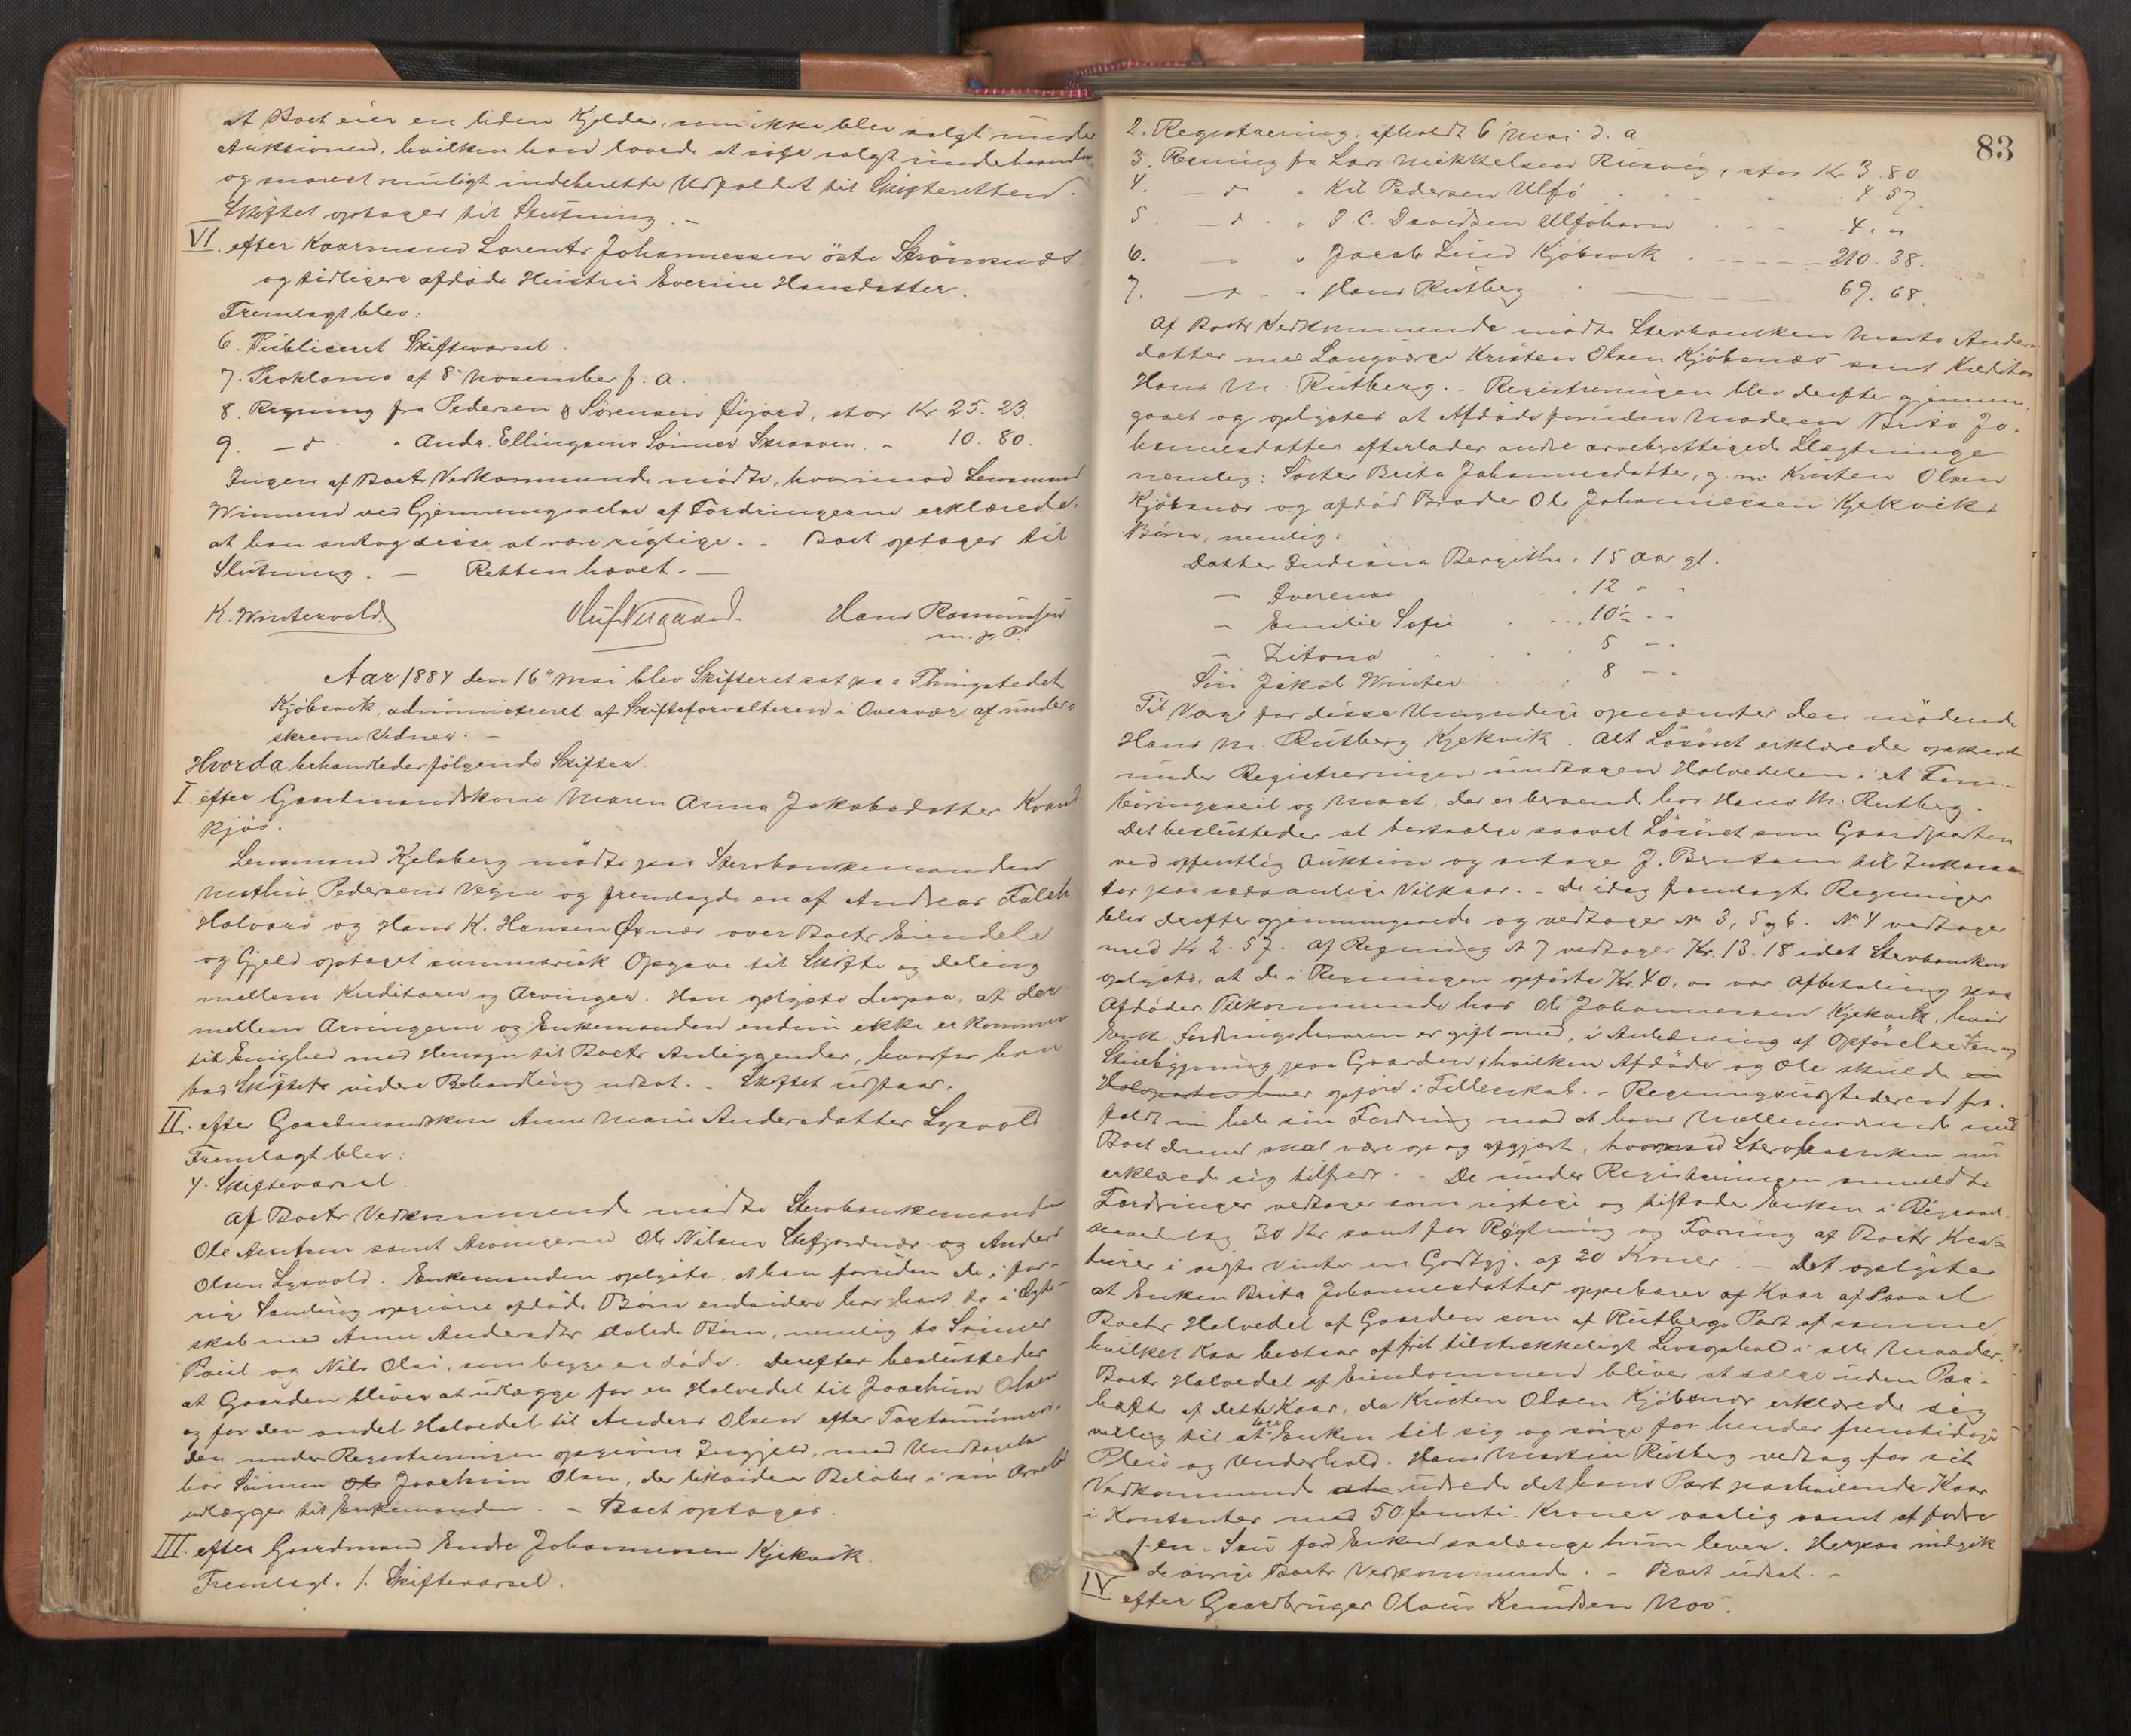 at Boet eier en liden Kjelder, som ikke blev solgt under
Auktionen, hvilken han lovede at søge solgt underhaanden
og snarest muligt indeberette Udfaldet til Skifteretten.
Skiftet optages til Slutning. –
VI. efter Kaarmand Lorents Johannessen østre Strømsnes
og tidligere afdøde Hustru Everine Hansdatter.
Fremlagt blev:
6. Publiceret Skiftevarsel.
7. Proklama af 8 November f. a.
8. Regning fra Pedersen & Sørensen Øijord, stor Kr 25. 23.
9. – d – " Andr. Ellingsens Sønner Skraaven " 10. 80.
Ingen af Boets Vedkommende mødte, hvorimod Lensmand
Winnend ved Gjennemgaaelse af Fordringerne erklærede,
at han antog disse at være rigtige. – Boet optages til
Slutning. – Retten hævet. –
K. Wintervold. Oluf Nergaard. Hans Rasmussen
m. p. P.
Aar 1884 den 16 Mai blev Skifteret sat paa Thingstedet
Kjøbsvik, administreret af Skifteforvalteren i Overvær af under-
skrevne Vidner. –
Hvorda behandledes følgende Skifter.
I. efter Gaardmandskone Maren Anna Jakobsdatter Kvand
kjøs.
Lensmand Kjelsberg mødte paa Stervboenkemanden
Mathis Pedersens Vegne og fremlagde en af Andreas Falch
Halvarø og Hans K. Hansen Øxnes over Boets Eiendele
og Gjeld optaget summarisk Opgave til Skifte og Deling
mellem Kreditorer og Arvinger. Han oplyste derpaa, at der
mellem Arvingerne og Enkemanden endnu ikke er kommen
til Enighed med Hensyn til Boets Anliggender, hvorfor han
bad Skiftets videre Behandling udsat. – Skiftet udstaar.
II. efter Gaardmandskone Anne Marie Andersdatter Lysvold
Fremlagt blev:
4. Skiftevarsel
Af Boets Vedkommende mødte Stervboenkemanden
Ole Arntsen samt Arvingerne Ole Nilsen Stefjordnes og Anders
Olsen Lysvold. Enkemanden oplyste, at han foruden de i for-
rige Samling opgivne afdøde Børn endvidere har havt to i Ægte-
skab med Anne Andersdtr avlede Børn, nemlig to Sønner
Poul og Nils Olai, som begge ere døde. Derefter besluttedes
at Gaarden bliver at udlægge for en Halvedel til Joachim Olsen
og for den anden Halvedel til Anders Olsen efter Taxtsummen.
Den under Registreringen opgivne Indgjeld, med Undtagelse
hos Sønnen Ole Joachim Olsen, der likviderer Beløbet i sin Arvelod
udlægges til Enkemanden. – Boet optages.
III. efter Gaardmand Endre Johannessen Kjekvik.
Fremlagt. 1. Skiftevarsel.
83
2. Registrering, afholdt 6 Mai d. a
3. Regning fra Lars Mikkelsen Rusvig, stor Kr 3. 80
4. – d " Kil Pedersen Ulfø 4. 57.
5. – d – " P. C. Davidsen Ulføhavn 4. "
6. " " Jacob Lund Kjøbsvik 210. 38.
7. – d – " Hans Rutberg 69. 68.
Af Boets Vedkommende mødte Stervboenken Marta Anders-
datter med Laugværge Kristen Olsen Kjøbsnæs samt Kreditor
Hans M. Rutberg. – Registreringen blev derefter gjennem-
gaaet og oplystes at Afdøde foruden Moderen Brita Jo-
hannesdatter efterlader andre arveberettigede Slægtninge
nemlig: Søster Brita Johannesdatter, g. m. Kristen Olsen
Kjøbsnæs og afdød Broder Ole Johannessen Kjekviks
Børn, nemlig:
Datter Indiana Bergithe, 15 Aar gl.
– Iverena 12 " "
– Emilie Sofie 10½ " "
– Zitona 5 " "
Søn Jakob Winter 8 – "
Til Værge for disse Umyndige opnævntes den mødende
Hans M. Rutberg Kjekvik. Alt Løsøret erklæredes opskrevet
under Registreringen undtagen Halvedelen i et Fem-
børingsseil og Mast, der er beroende hos Hans M. Rutberg.
Det besluttedes at bortsælge saavel Løsøret som Gaardparten
ved offentlig Auktion og antages J. Berntsen til Inkassa-
tor paa sædvanlige Vilkaar. – De idag fremlagte Regninger
blev derefter gjennemgaaede og vedtages No 3, 5 og 6. No 4 vedtages
med Kr 2. 57. Af Regning No 7 vedtages Kr. 13. 18 idet Stervboenken
oplyste, at de i Regningen opførte Kr. 40, oo var Afbetaling paa
Afdødes Tilkommende hos Ole Johannessen Kjekvik, hvis
Enke Fordringshaveren er gift med, i Anledning af Opførelse af en ny
Stuebygning paa Gaarden, hvilken Afdøde og Ole skulde ein
Halvparten hver opføre i Fællesskab. – Regningsudstederen fra-
faldt nu hele sin Fordring mod at hans Mellemværende med
Boet dermed skal være op og afgjort, hvormed Stervboenken nu
erklærede sig tilfreds. – De under Registreringen anmeldte
Fordringer vedtages som rigtige og tilstodes Enken i Begravel-
30 Kr samt for Røgtning og Foring af Boets Krea-
turer i sidste Vinter en Godtgj. af 20 Kroner. – Det oplystes
at Enken Brita Johannesdatter oppebærer af Kaar af saavel
Boets Halvedel af Gaarden som af Rutbergs Part af samme,
hvilket Kaar bestaar af frit tilstrækkeligt Livsophold i alle Maader.
Boets Halvedel af Eiendommen bliver at sælge uden Paa-
hefte af dette Kaar, da Kristen Olsen Kjøbsnæs erklærede sig
villig til at tage Enken til sig og sørge for hendes fremtidige
Pleie og Underhold. Hans Martin Rutberg vedtog for sit
Vedkommende at udrede det hans Part paahvilende Kaar
i Kontanter med 50 femti Kroner aarlig samt at fodre
1 en Sau for Enken saalænge hun lever. Herpaa indgik
de øvrige Boets Vedkommende. – Boet udsat. –
IV. efter Gaardbruger Olaus Knudsen Moo.